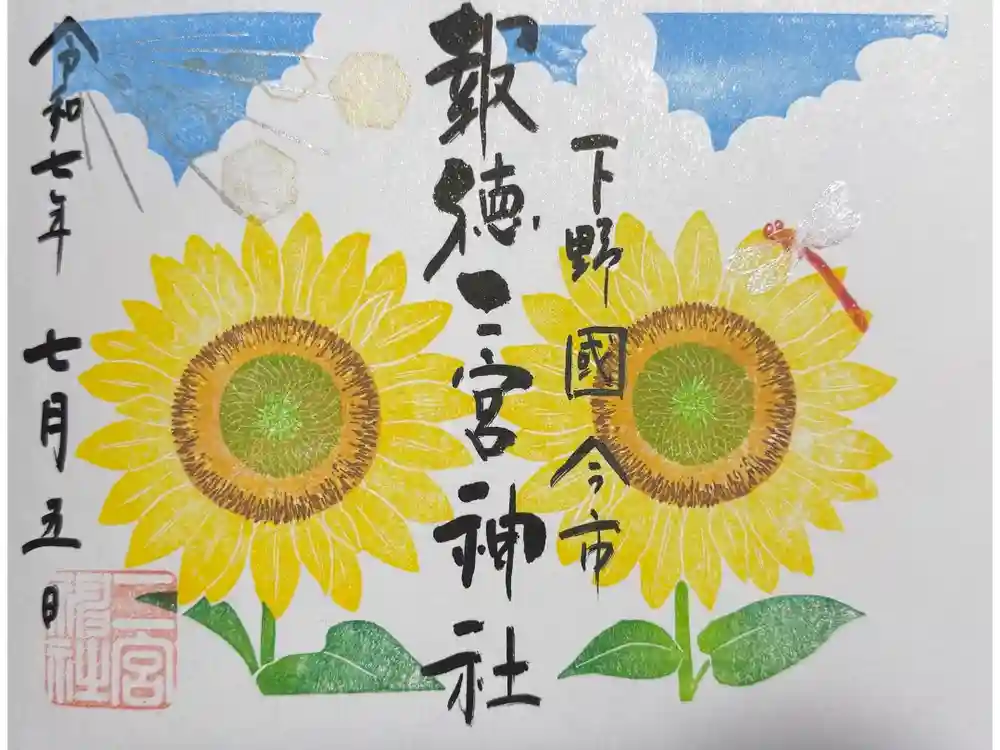 下野國今市
報徳二宮神社
令和七年 七月五日
二宮
神社